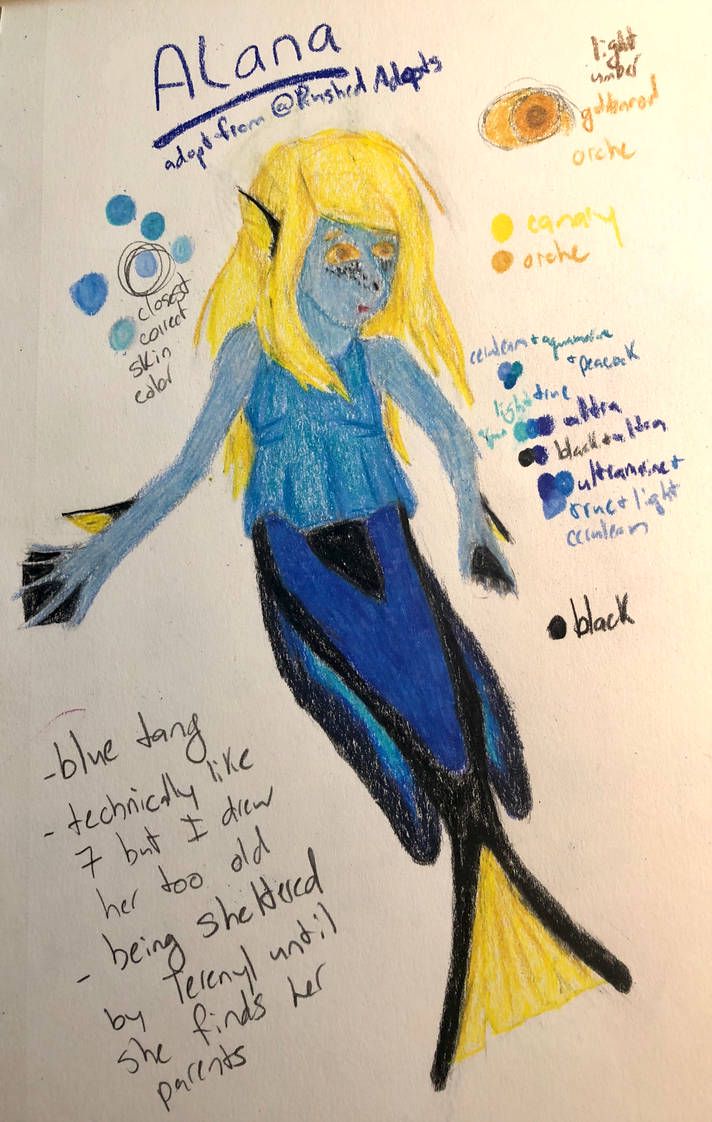 ALana
adopt from @Rushed Adopts
light
umber
goldenrod
orche
canary
orche
closest
correct
skin
color
cerulean + aquamarine
+ peacock
light + true
ultra
black + ultra
ultramarine +
true + light
cerulean
black
- blue tang
- technically like
7 but I drew
her too old
- being sheltered
by Terenyl until
she finds her
parents